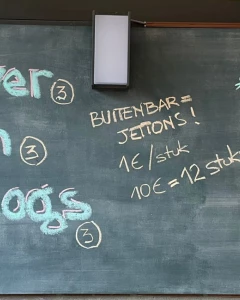 ver ③
③
ogs ③
BUITENBAR =
JETTONS!
1€/stuk
10€ = 12 stuk